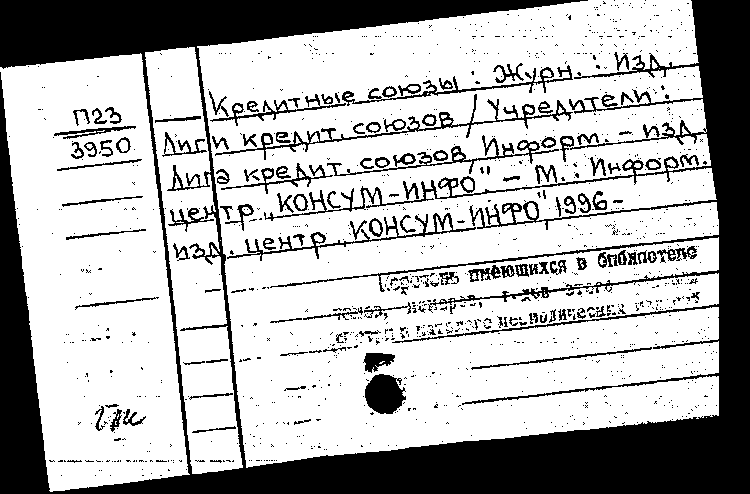 П23
3950
Кредитные союзы : Журн. : Изд.
Лиги кредит. союзов / Учредители :
Лига кредит. союзов, Информ. - изд.
центр „КОНСУМ-ИНФО". - М. : Информ.
изд. центр „КОНСУМ-ИНФО", 1996 -
Перечень имеющихся в библиотеке
томов, номеров, этого
смотри в каталоге периодических изданий